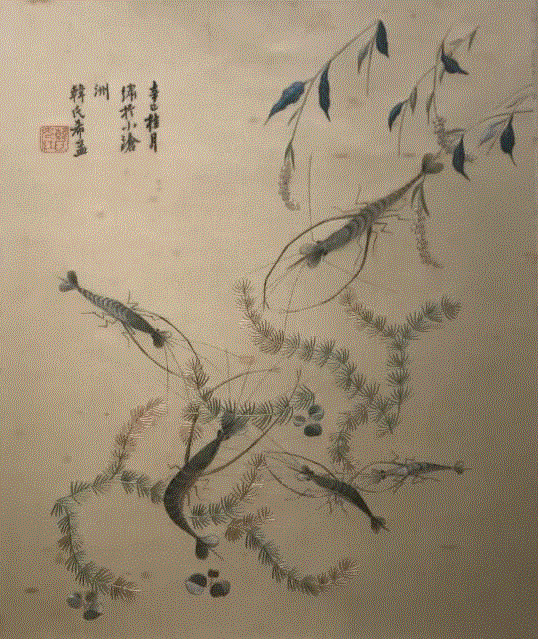 辛巳桂月
繡於小滄
洲
韓氏希孟